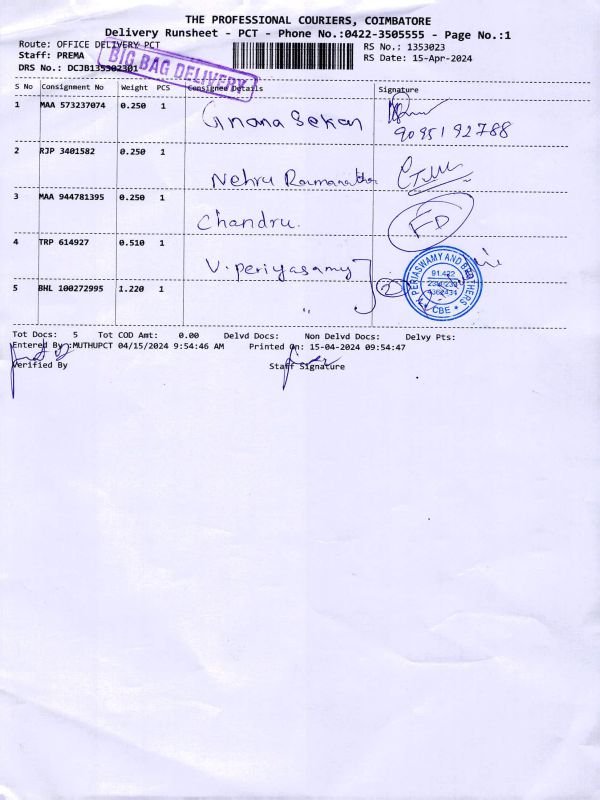 THE PROFESSIONAL COURIERS, COIMBATORE
Delivery Runsheet - PCT - Phone No.:0422-3505555 - Page No.:1
Route: OFFICE DELIVERY PCT
RS No.: 1353023
Staff: PREMA
RS Date: 15-Apr-2024
DRS No.: DCJB135302301
BIG BAG DELIVERY
S No Consignment No Weight PCS Consignee Details Signature
1 MAA 573237074 0.250 1 Gnana Sekan
9095192788
2 RJP 3401582 0.250 1
Nehru Ramanathan
3 MAA 944781395 0.250 1
Chandru.
FD
4 TRP 614927 0.510 1
V. Periyasamy
5 BHL 100272995 1.220 1 "
2
PERIASWAMY AND BROTHERS
CBE
Tot Docs: 5 Tot COD Amt: 0.00 Delvd Docs: Non Delvd Docs: Delvy Pts:
Entered By :MUTHUPCT 04/15/2024 9:54:46 AM Printed On: 15-04-2024 09:54:47
Verified By Staff Signature